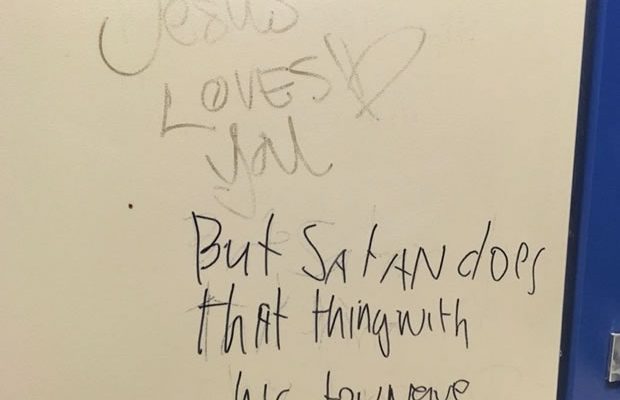 Jesus
LOVES
you
But SATAN does
that thing with
his tongue